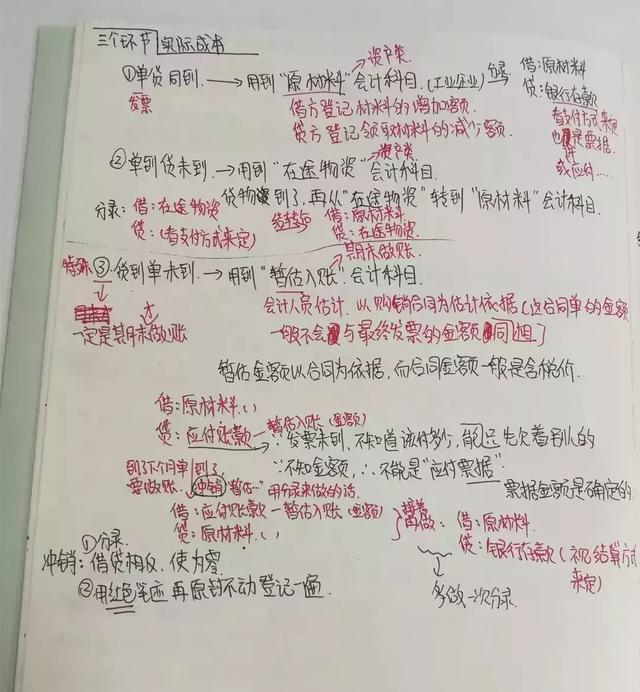 三个环节 实际成本
资产类
①单货同到. → 用到"原材料"会计科目.(工业企业) 分录 借:原材料
发票
贷:银行存款
借方登记材料的增加金额.
看支付方式来定
贷方登记领取材料的减少金额.
也许是票据
或应付……
资产类
②单到货未到. → 用到"在途物资"会计科目.
货物到了,再从"在途物资"转到"原材料"会计科目.
分录: 借:在途物资 结转后 借:原材料
贷:(看支付方式来定) 贷:在途物资.
期末做账.
特殊 ③货到单未到. → 用到"暂估入账"会计科目.
会计人员估计.以购销合同为估计依据(这合同单的金额
一定是期末做账
一般不会与最终发票的金额同)
暂估金额以合同为依据,而合同金额一般是含税价.
借:原材料()
贷:应付账款—暂估入账(金额)
∵发票未到,不知道该付多少,能只先欠着别人的
到了下个月单到了
∵不知金额,∴不能是"应付票据"
要做账. 冲销"暂估…"用分录来做的话.
票据金额是确定的
借:应付账款—暂估入账(金额)
接着再做: 借:原材料.
贷:原材料.()
贷:银行存款(视结算方式来定)
①分录.
冲销:借贷相反,使为零
②用红色笔迹再原封不动登记一遍.
多做一次分录.